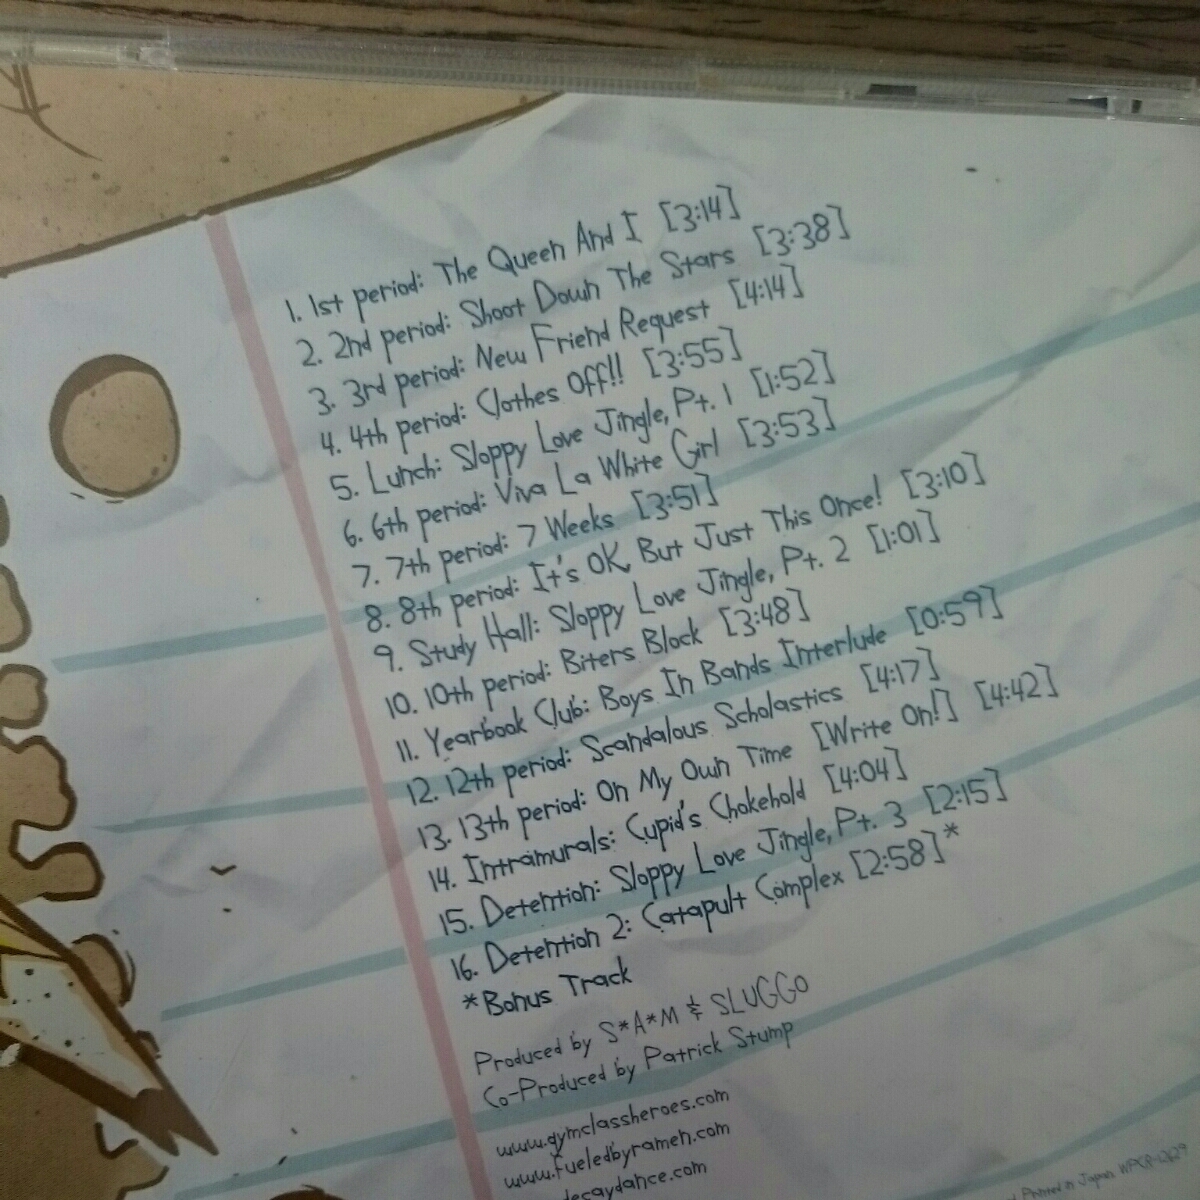 1. 1st period: The Queen And I [3:14]
2. 2nd period: Shoot Down The Stars [3:38]
3. 3rd period: New Friend Request [4:14]
4. 4th period: Clothes Off!! [3:55]
5. Lunch: Sloppy Love Jingle, Pt. 1 [1:52]
6. 6th period: Viva La White Girl [3:53]
7. 7th period: 7 Weeks [3:51]
8. 8th period: It's OK, But Just This Once! [3:10]
9. Study Hall: Sloppy Love Jingle, Pt. 2 [1:01]
10. 10th period: Biters Block [3:48]
11. Yearbook Club: Boys In Bands Interlude [0:59]
12. 12th period: Scandalous Scholastics [4:17]
13. 13th period: On My Own Time [Write On!] [4:42]
14. Intramurals: Cupid's Chokehold [4:04]
15. Detention: Sloppy Love Jingle, Pt. 3 [2:15]
16. Detention 2: Catapult Complex [2:58]*
*Bonus Track
Produced by S*A*M & SLUGGO
Co-Produced by Patrick Stump
www.gymclassheroes.com
www.fueledbyramen.com
decaydance.com
Printed in Japan